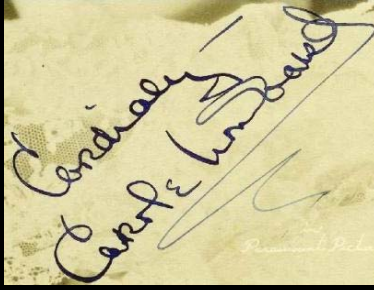 Cordially
Carole Lombard
Paramount Pictu